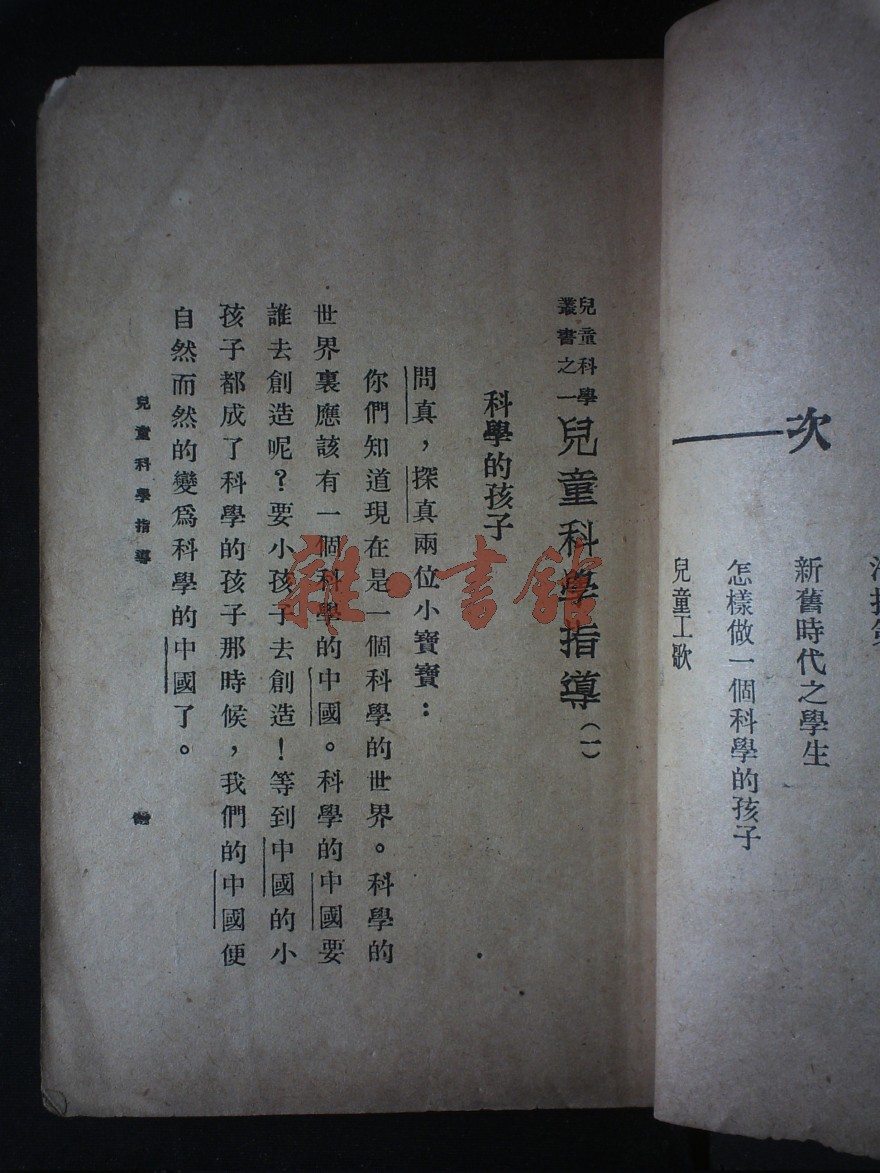 次
新舊時代之學生
怎樣做一個科學的孩子
兒童工歌
兒童科學
叢書之一
兒童科學指導(一)
科學的孩子
問真，探真兩位小寶寶：
你們知道現在是一個科學的世界。科學的
世界裏應該有一個科學的中國。科學的中國要
誰去創造呢？要小孩子去創造！等到中國的小
孩子都成了科學的孩子那時候，我們的中國便
自然而然的變爲科學的中國了。
兒童科學指導
雜·書館